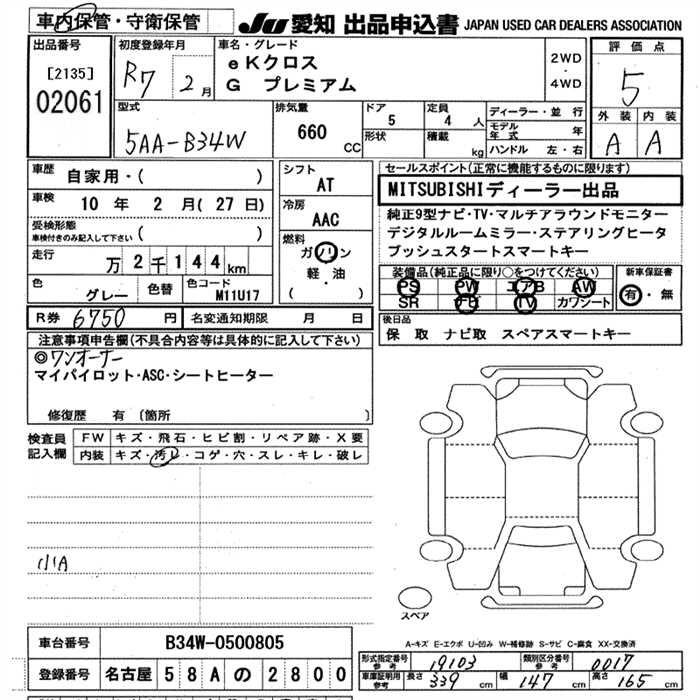 車内保管・守衛保管
JU 愛知 出品申込書 JAPAN USED CAR DEALERS ASSOCIATION
出品番号
[2135]
02061
初度登録年月
R7 2月
車名・グレード
eKクロス
G プレミアム
2WD
・
4WD
評価点
5
外装 内装
A A
型式
5AA-B34W
排気量
660
CC
ドア
5
形状
定員
4 人
積載
kg
ディーラー・並行
モデル年式 年
ハンドル 左・右
車歴
自家用・( )
車検
10 年 2 月(27日)
受検形態
車検付きのみ記入して下さい ( )
走行
万2千144km
色
グレー
色替
色コード
M11U17
シフト
AT
冷房
AAC
燃料
ガソリン
軽・油
( )
セールスポイント(正常に機能するものに限ります)
MITSUBISHIディーラー出品
純正9型ナビ・TV・マルチアラウンドモニター
デジタルルームミラー・ステアリングヒータ
プッシュスタートスマートキー
装備品(純正品に限り○をつけてください)
PS PW エアB AW
SR ナビ TV カワシート
新車保証書
有・無
後日品
保 取 ナビ取 スペアスマートキー
R券 6750 円 名変通知期限 月 日
注意事項申告欄(不具合内容等は具体的に記入して下さい)
◎ワンオーナー
マイパイロット・ASC・シートヒーター
修復歴 有 〔箇所 〕
検査員
記入欄
FW キズ・飛石・ヒビ割・リペア跡・X要
内装 キズ・汚レ・コゲ・穴・スレ・キレ・破レ
小A
スペア
A-キズ E-エクボ U-凹み W-補修跡 S-サビ C-腐食 XX-交換済
車台番号 B34W-0500805
登録番号 名古屋 58Aの2800
形式指定番号
参考
19103
類別区分番号
参考
0017
車庫証明用
参考
長さ 339 cm 幅 147 cm 高さ 165 cm